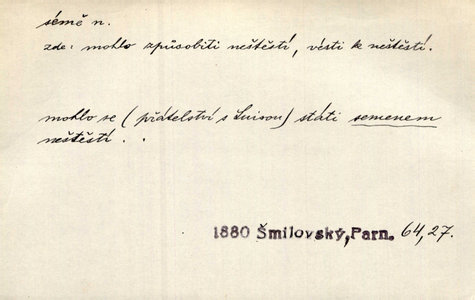 símě n.
zde: mohlo způsobiti neštěstí, vésti k neštěstí.
mohlo se (přátelství s Luisou) státi semenem
neštěstí . .
1880 Šmilovský, Parn. 64,27.